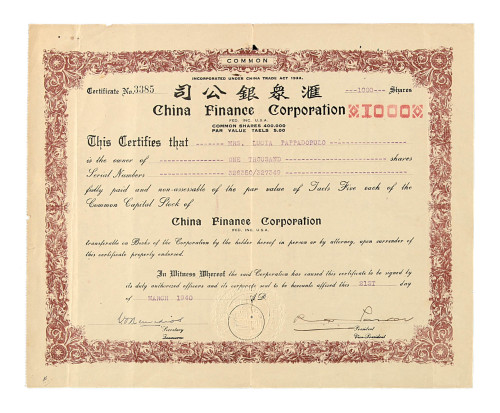 COMMON
INCORPORATED UNDER CHINA TRADE ACT 1922.
Certificate No. 3385
司公銀衆滙
---1000--- Shares
China Finance Corporation
FED. INC. U.S.A.
1000
COMMON SHARES 400,000
PAR VALUE TAELS 5.00
This Certifies that ------- MRS. LUCIA PAPPADOPULO -----------------
is the owner of ---------------- ONE THOUSAND ---------------- shares
Serial Numbers
fully paid and non-assessable of the par value of Taels Five each of the
Common Capital Stock of
China Finance Corporation
FED. INC. U.S.A.
transferable on Books of the Corporation by the holder hereof in person or by attorney, upon surrender of
this certificate properly endorsed.
In Witness Whereof the said Corporation has caused this certificate to be signed by
its duly authorized officers and its corporate seal to be hereunto affixed this 21ST day
of MARCH 1940 A.D.
Secretary
Treasurer
President
Vice-President